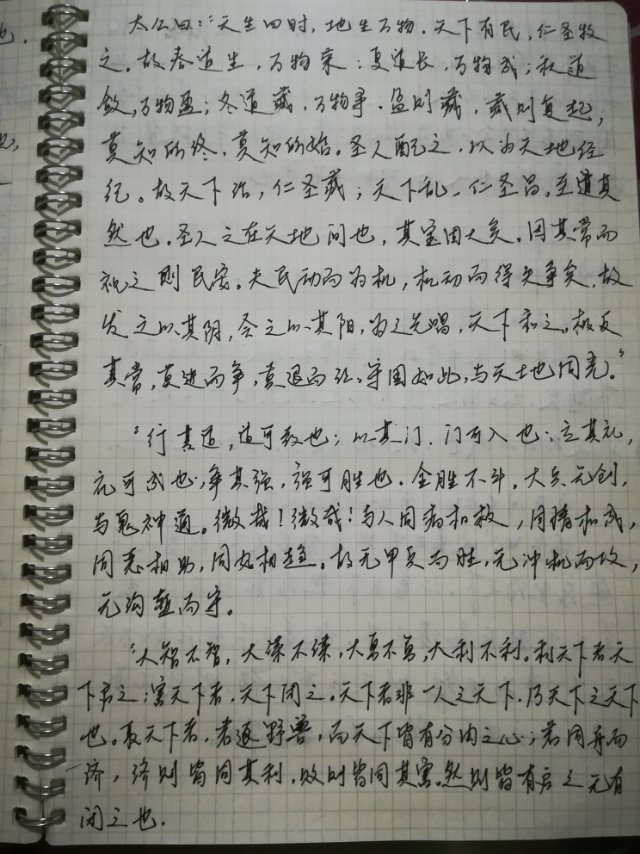 也.
太公曰："天生四时，地生万物。天下有民，仁圣牧
之。故春道生，万物荣；夏道长，万物成；秋道
敛，万物盈；冬道藏，万物寻。盈则藏，藏则复起，
莫知所终，莫知所始。圣人配之，以为天地经
纪。故天下治，仁圣藏；天下乱，仁圣昌。至道其
然也。圣人之在天地间也，其宝固大矣。因其常而
视之则民安。夫民动而为机，机动而得失争矣。故
发之以其阴，会之以其阳，为之先唱，天下和之。极反
其常，莫进而争，莫退而让。守国如此，与天地同光。"
"行其道，道可致也；从其门，门可入也；立其礼，
礼可成也；争其强，强可胜也。全胜不斗，大兵无创，
与鬼神通。微哉！微哉！与人同病相救，同情相成，
同恶相助，同好相趋。故无甲兵而胜，无冲机而攻，
无沟堑而守。
"大智不智，大谋不谋，大勇不勇，大利不利。利天下者，天
下启之；害天下者，天下闭之。天下者非一人之天下，乃天下之天下
也。取天下者，若逐野兽，而天下皆有分肉之心；若同舟而
济，济则皆同其利，败则皆同其害。然则皆有启之，无有
闭之也。